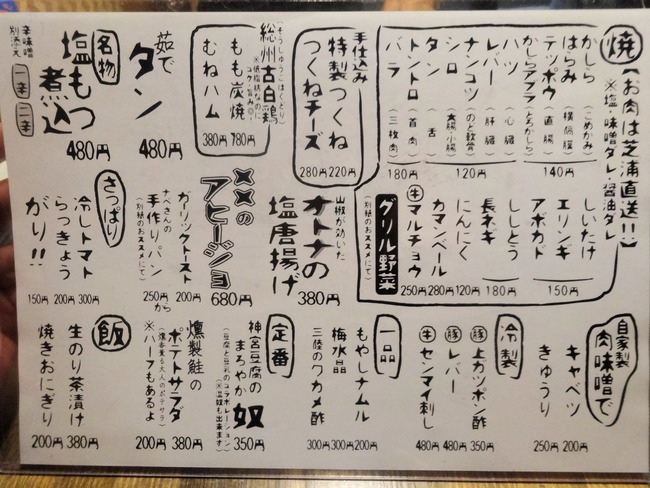 焼
【お肉は芝浦直送!!】
※塩・味噌ダレ・醤油ダレ
かしら（こめかみ）
はらみ（横隔膜）
テッポウ（直腸）
かしらアブラ（とろかしら）
140円
ハツ（心臓）
レバー（肝臓）
ナンコツ（のど軟骨）
シロ（大腸小腸）
タン（舌）
120円
トントロ（首肉）
バラ（三枚肉）
180円
しいたけ
エリンギ
アボカド
150円
ししとう
長ネギ
180円
にんにく
120円
カマンベール
280円
牛マルチョウ
250円
グリル野菜
（別紙のおススメにて）
手仕込み
特製つくね
220円
つくねチーズ
280円
総州古白鶏
（そうしゅうこはくどり）
もも炭焼
780円
むねハム
380円
茹でタン
480円
名物
塩もつ煮込
480円
辛味噌別添え
一辛
二辛
山椒が効いた
オトナの塩唐揚げ
380円
××のアヒージョ
680円
ガーリックトースト
200円
ナベさんの手作りパン
（別紙のおススメにて）
250円から
さっぱり
冷しトマト
300円
らっきょう
200円
がり!!
150円
自家製肉味噌で
キャベツ
200円
きゅうり
250円
冷製
豚上ガツポン酢
350円
豚レバー
480円
牛センマイ刺し
480円
一品
もやしナムル
200円
梅水晶
300円
三陸のワカメ酢
300円
定番
神宮豆腐のまろやか奴
（豆腐と豆乳のコラボレーション）
（※温奴も出来ます）
350円
燻製鮭のポテトサラダ
（燻香薫る大人のポテサラ）
380円
※ハーフもあるよ
200円
飯
生のり茶漬け
380円
焼きおにぎり
200円